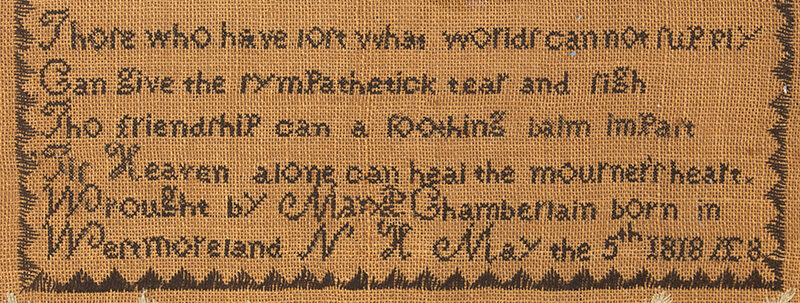 Those who have lost what worlds can not supply
Can give the sympathetick tear and sigh
Tho friendship can a soothing balm impart
Tis Heaven alone can heal the mourners heart.
Wrought by Chamberlain born in
Westmoreland N H May the 5th 1818 Æ 8